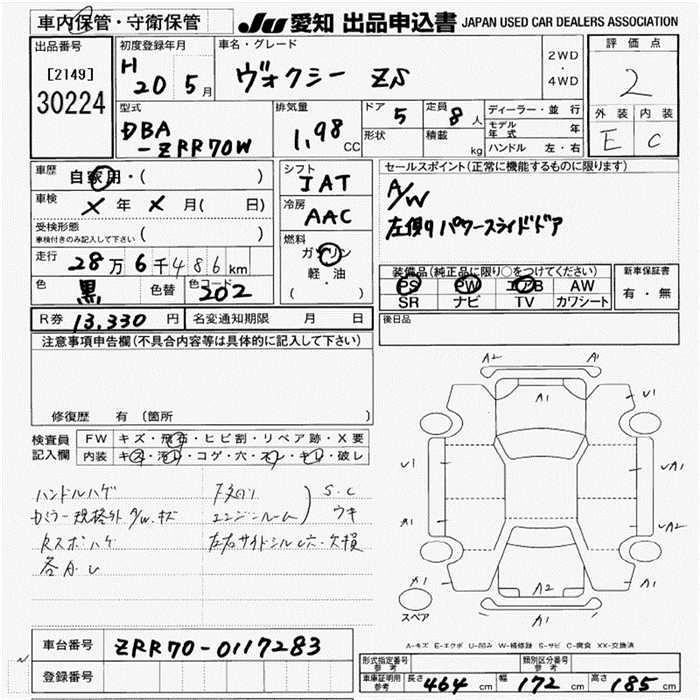 車内保管・守衛保管
JU 愛知 出品申込書 JAPAN USED CAR DEALERS ASSOCIATION
出品番号
[2149]
30224
初度登録年月
H 20 5月
車名・グレード
ヴォクシー ZS
2WD
・
4WD
評価点
2
外装 内装
E C
型式
DBA
-ZRR70W
排気量
1,98 CC
ドア 5
定員 8人
形状
積載 kg
ディーラー・並行
モデル年式 年
ハンドル 左・右
車歴 自家用・( )
車検 X年 X月( 日)
受検形態
車検付きのみ記入して下さい ( )
走行 28万6千486km
色 黒 色替 色コード 202
シフト
IAT
冷房
AAC
燃料
ガソリン
軽・油
( )
セールスポイント(正常に機能するものに限ります)
A/W
左側パワースライドドア
装備品(純正品に限り○をつけてください)
PS PW エアB AW
SR ナビ TV カワシート
新車保証書
有・無
R券 13,330円 名変通知期限 月 日
後日品
注意事項申告欄(不具合内容等は具体的に記入して下さい)
修復歴 有(箇所 )
検査員
記入欄
FW キズ・飛石・ヒビ割・リペア跡・X要
内装 キズ・汚れ・コゲ・穴・スレ・キレ・破レ
ハンドルハゲ
カラー規格外 A/W.キズ
RスポハゲS.C
エンジンルーム ウキ
左右サイドシル凹・欠損
各A.U
A2 A1
A1
U1
U1 A1
A1 UA2
A1 A2 A1
A1
スペア
A-キズ E-エクボ U-凹み W-補修跡 S-サビ C-腐食 XX-交換済
車台番号 ZRR70-0117283
登録番号
形式指定番号
参考
類別区分番号
参考
車庫証明用
参考
長さ 464cm 幅 172cm 高さ 185cm